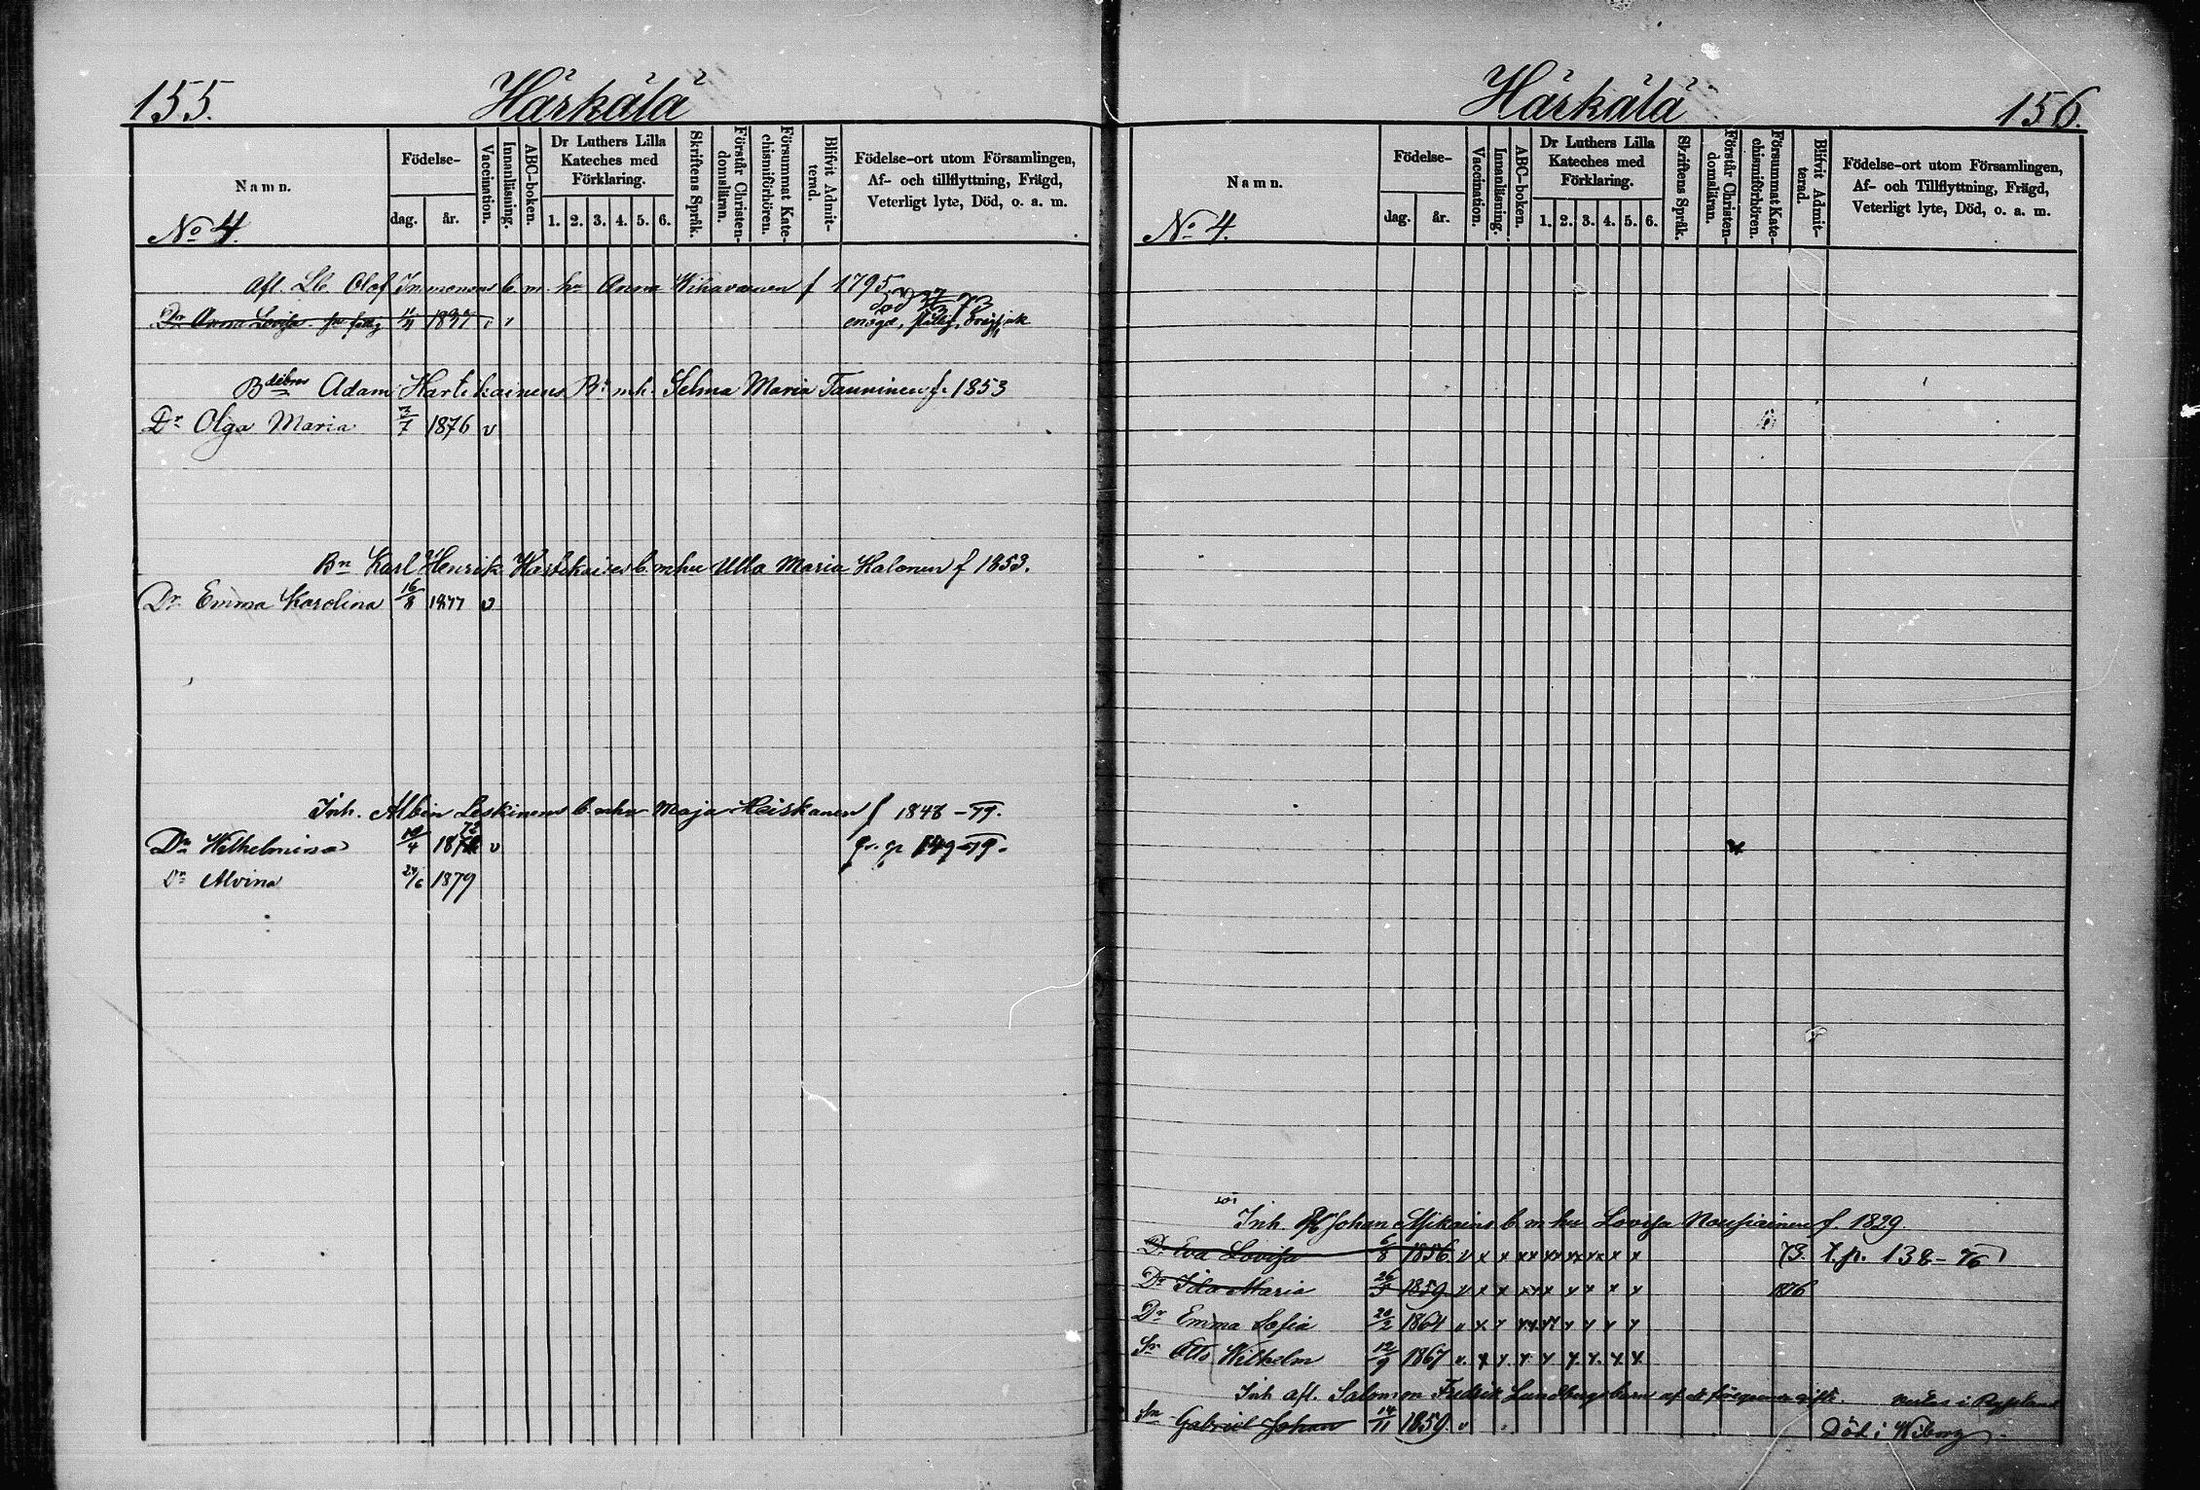 155.
Härkälä
Namn.
Födelse-
dag.
år.
Vaccination.
Innanläsning.
ABC-boken.
Dr Luthers Lilla
Kateches med
Förklaring.
1. 2. 3. 4. 5. 6.
Skriftens Språk.
Förstår Christen-
domsläran.
Försummat Kate-
chismiförhören.
Blifvit Admit-
terad.
Födelse-ort utom Församlingen,
Af- och tillflyttning, Frägd,
Veterligt lyte, Död, o. a. m.
No 4.
Afl. Olof Immonens b. m. hu Anna Wihavainen f 1795
Död 73
Dr Anna Lovisa 11/11 1837
Adam Hartikainens Bn m h. Selma Maria Tanninen f. 1853
Dr Olga Maria 7/7 1876 v
Bn Karl Henrik b. m hu Ulla Maria Halonen f 1853.
Dr Emma Karolina 16/8 1877 v
Inh. Albin Leskinens b. m hu Maja Heiskanen f 1848 - 79.
Dr Wilhelmina 10/4 v
Dr Alvina 24/6 1879
Härkälä
156.
Namn.
Födelse-
dag.
år.
Vaccination.
Innanläsning.
ABC-boken.
Dr Luthers Lilla
Kateches med
Förklaring.
1. 2. 3. 4. 5. 6.
Skriftens Språk.
Förstår Christen-
domsläran.
Försummat Kate-
chismiförhören.
Blifvit Admit-
terad.
Födelse-ort utom Församlingen,
Af- och Tillflyttning, Frägd,
Veterligt lyte, Död, o. a. m.
No 4.
Inh. Johan b m hu Lovisa Nousiainen f. 1829.
Dr Eva Lovisa 6/8 1856 v x x xx xx xx x x x 73. 138-76
Dr Ida Maria 1859 v x x xx x x x x x 1876
Dr Emma Sofia 20/2 1864
Sn Otto Wilhelm 12/9 1867
Inh afl. Salomon Fredrik Lundbergs barn af
Sn Gabriel Johan 14/11 1859 v Död i Wiborg